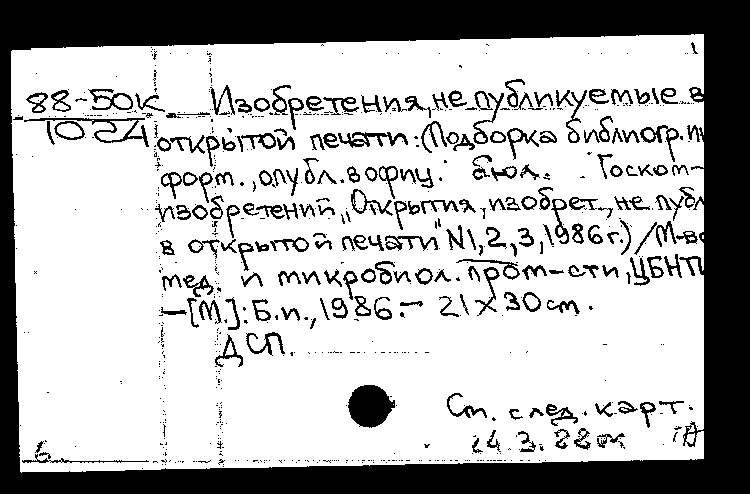 88-50к Изобретения, не публикуемые в
1024 открытой печати: (Подборка библиогр. ин
форм., опубл. в офиц. бюл. Госком-
изобретений „Открытия, изобрет., не публ
в открытой печати" N1,2,3,1986г.) / М-во
мед. и микробиол. пром-сти, ЦБНТИ
–[М.]: Б.и., 1986. – 21×30 см.
ДСП.
См. след. карт.
24.3.88
6.